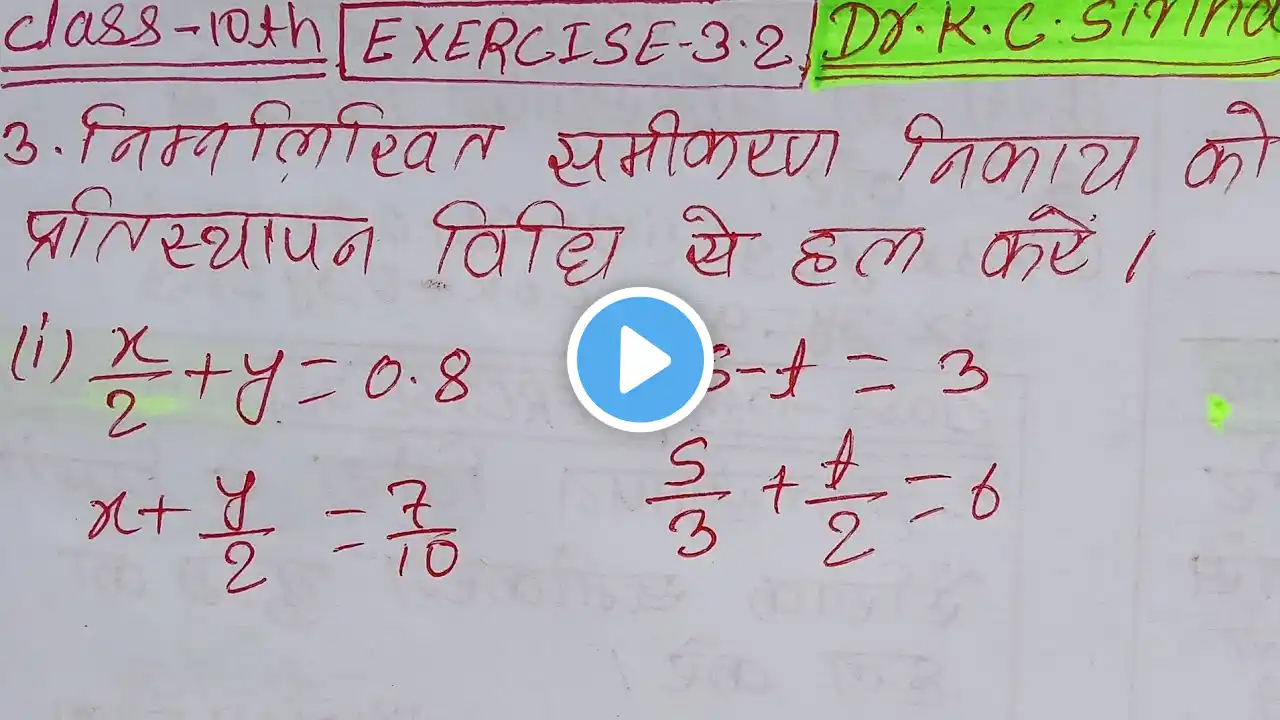 class-10th EXERCISE-3.2 Dr. K. C. 
3. निम्नलिखित समीकरण निकाय को
प्रतिस्थापन विधि से हल करें।
(i) x/2 + y = 0.8
x + y/2 = 7/10
s - t = 3
s/3 + t/2 = 6